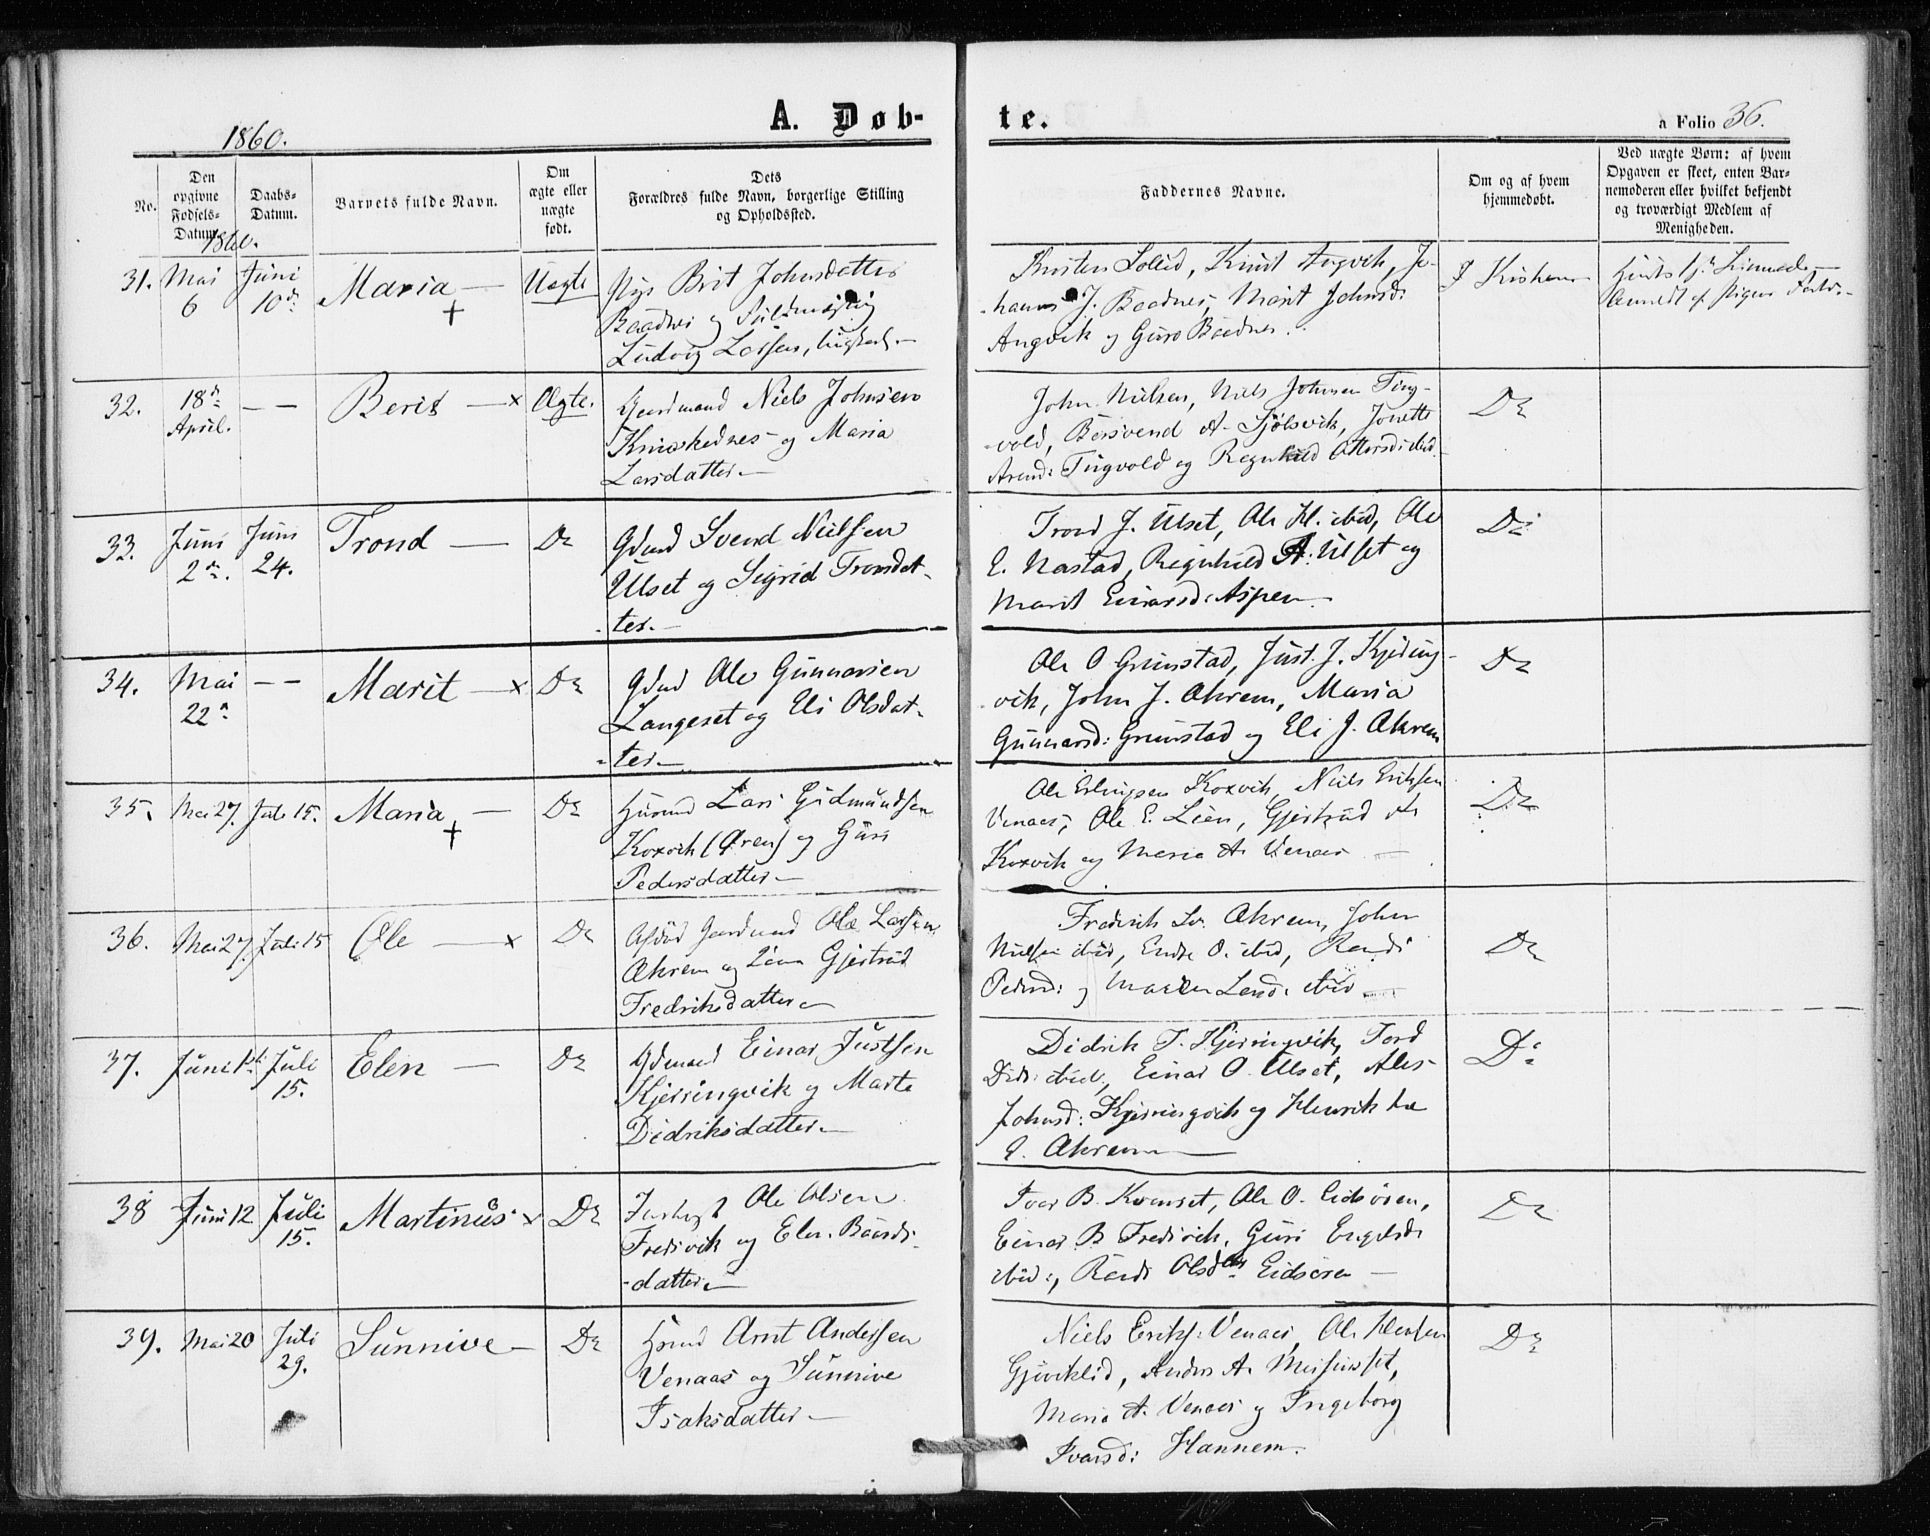 1860.
A. Døb-
te.
a Folio 36.
No.
Den
opgivne
Fødsels-
Datum.
Daabs-
Datum.
Barnets fulde Navn.
Om
ægte eller
uægte
født.
Dets
Forældres fulde Navn, borgerlige Stilling
og Opholdssted.
Faddernes Navne.
Om og af hvem
hjemmedøbt.
Ved uægte Børn: af hvem
Opgaven er skeet, enten Bar-
nemoderen eller hvilket bekjendt
og troværdigt Medlem af
Menigheden.
1860.
31. Mai
6
Juni
10de
Maria —
+
Uægte
Pige Brit Johnsdatter
Baadnes og
Ludvig Larsen, —
Knut Angvik, Jo-
-hannes J. Baadnes, Marit Johnsd:
Angvik og Guro Baadnes.
32.
18de
April.
— —
Berit — x
Ægte.
Gaardmand Niels Johnsen
og Maria
Larsdatter —
John Nielsen, Niels Johnsen Ting-
-vold, A. Sjølsvik,
Arnsd: Tingvold og Ragnhild ibid.
Do
33.
Juni
2de.
Juni
24.
Trond —
Do
Gdmd Svend Nielsen
Ulset og Sigrid Trondsdat-
-ter. —
Trond J. Ulset, Ole H. ibid, Ole
E. Nastad, Ragnhild A. Ulset og
Marit Einarsd: Aspen.
Do
34.
Mai
22de
— —
Marit — x
Do
Gdmd Ole Gunnarsen
Langeset og Eli Olsdat-
-ter —
Ole O. Grimstad, Just. J. Kjering-
-vik, John J. Ahrem, Maria
Gunnarsd: Grimstad og Eli J. Ahrem
Do
35. Mai 27. Juli 15. Maria —
+
Do
Husmd Lars Gudmundsen
Koxvik og Guri
Pedersdatter —
Ole Erlingsen Koxvik, Niels Eriksen
Venaes, Ole E. Lien, Gjertrud
Koxvik og Maria A. Venaes —
Do
36. Mai 27. Juli 15 Ole — x
Do
Afdød Gaardmand Ole Larsen
Ahrem og Kone Gjertrud
Fredriksdatter —
Fredrik Ahrem, John
Nielsen ibid, Endre O. ibid, Randi
Pedersd: og ibid —
Do
37. Juni 1st Juli
15.
Elen —
Do
Gdmand Einar Justsen
Kjerringvik og Marte
Didriksdatter —
Didrik T. Kjerringvik, Tord
Didr: ibid, Einar O. Ulset,
Johnsd: Kjerringvik og Henrik
E. Ahrem —
Do
38 Juni 12 Juli
15.
Martinus x
Do
Ole Olsen
Fredsvik og Elen Baards-
-datter —
Ivar B. Kvenset, Ole O. Eidsøren,
Einar B. Fredsvik, Guri
ibid:, Randi Olsdtr Eidsøren —
Do
39. Mai 20 Juli
29.
Sunnive —
Do
Husmd Arnt Andersen
Venaas og Sunnive
Isaksdatter —
Niels Eriks: Venaes,
Gjøviklid, Anders A.
Maria A. Venaes og Ingeborg
Ivarsd: Hannem.
Do